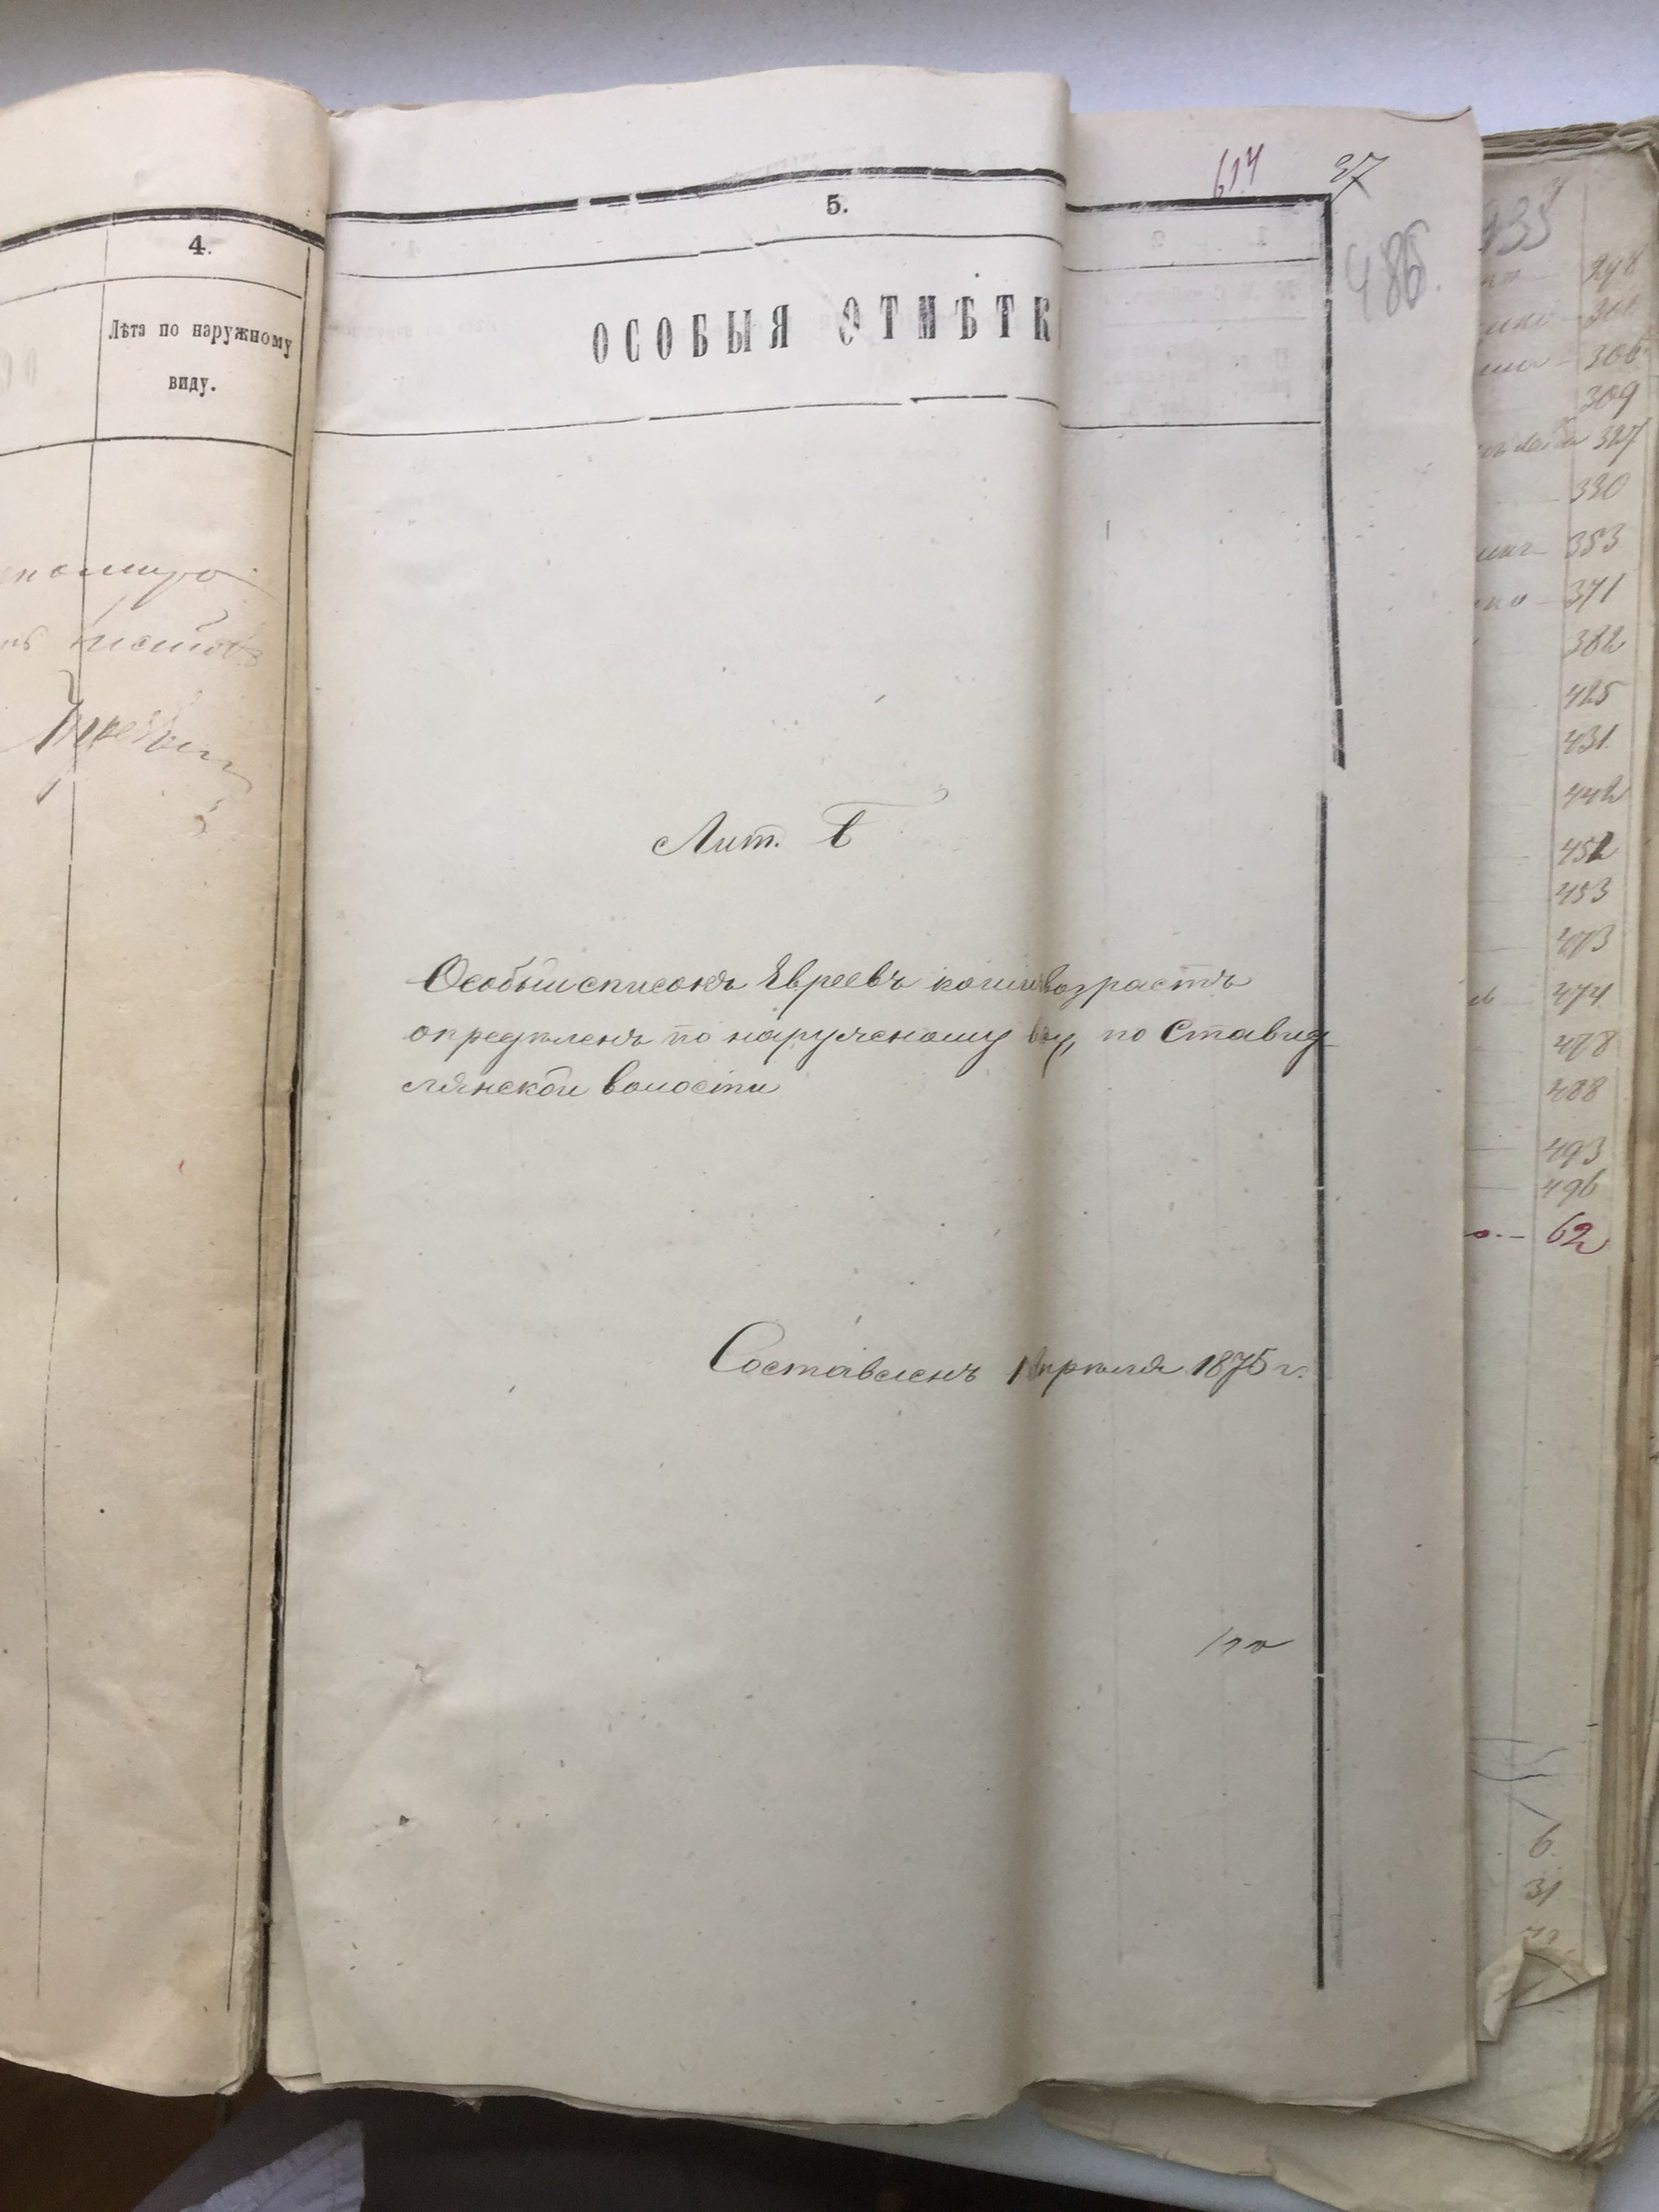 4.
Лѣта по наружному
виду.
5.
ОСОБЫЯ ОТМѢТК
614
37
486.
Лит. Б
Особый списокъ Евреевъ коихъ возрастъ
опредѣленъ по наружному виду, по Ставид
лянской волости
Составленъ 1 Апрѣля 1875 г.
листовъ
298
306
309
327
330
353
371
382
425
431.
442
452
453
473
474
478
488
493
496
62
6
31